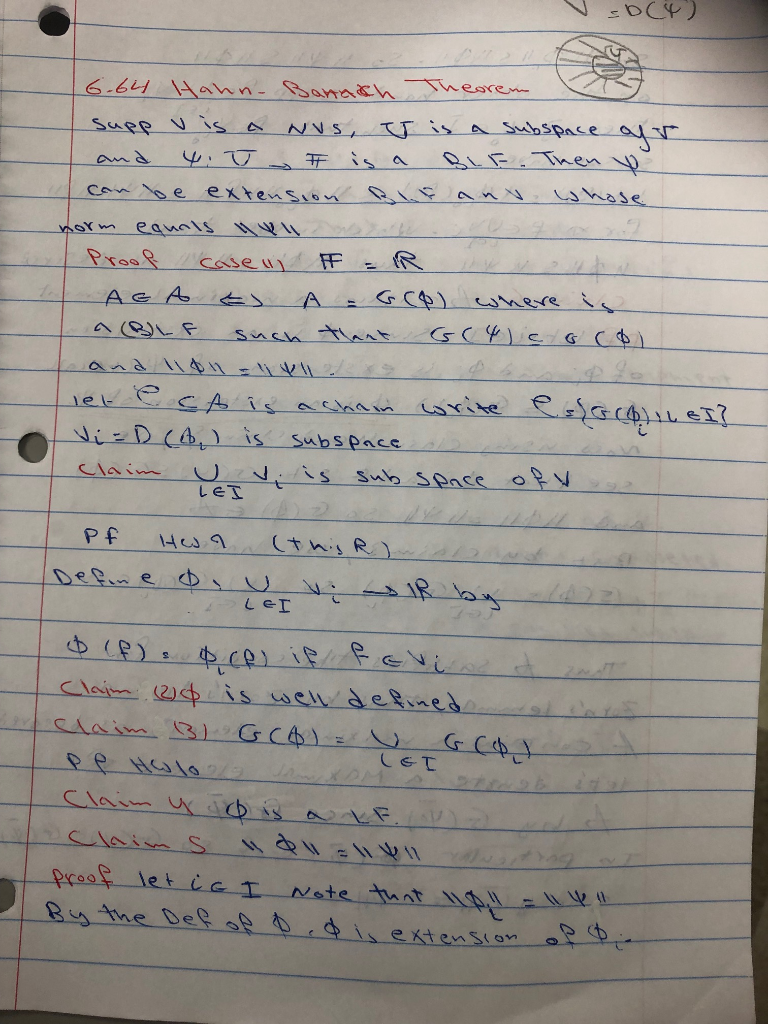 V = D(ψ)
ψ
6.64 Hahn-Banach Theorem
supp V is a NVS, U is a subspace of V
and ψ: U → F is a BLF. Then ψ
can be extension BLF an V whose
norm equals ||ψ||
Proof case(1) F = R
A ∈ A ⟺ A = G(φ) where is
a (B)LF such that G(ψ) ⊆ G(φ)
and ||φ|| = ||ψ||.
let C ⊆ A is a chain write C = {G(φ_i), i ∈ I}
V_i = D(φ_i) is subspace
Claim ∪_{i∈I} V_i is sub space of V
Pf HW 9 (this R)
Define φ: ∪_{i∈I} V_i → R by
φ(f) = φ_i(f) if f ∈ V_i
Claim (2) φ is well defined
Claim (3) G(φ) = ∪_{i∈I} G(φ_i)
Pf HW10
Claim 4 φ is a LF.
Claim 5 ||φ|| = ||ψ||
proof let i ∈ I Note that ||φ_i|| = ||ψ||
By the Def of φ, φ is extension of φ_i.